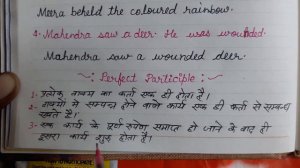 Meera beheld the coloured rainbow.
4. Mahendra saw a deer. He was wounded.
Mahendra saw a wounded deer.
~: Perfect Participle :~
1- प्रत्येक वाक्य का कर्ता एक ही होता है।
2- वाक्यों में सम्पन्न होने वाले कार्य एक ही कर्ता से सम्बन्ध
रखते हैं।
3- एक कार्य के पूर्ण रूपेण समाप्त हो जाने के बाद ही
दूसरा कार्य शुरू होता है।